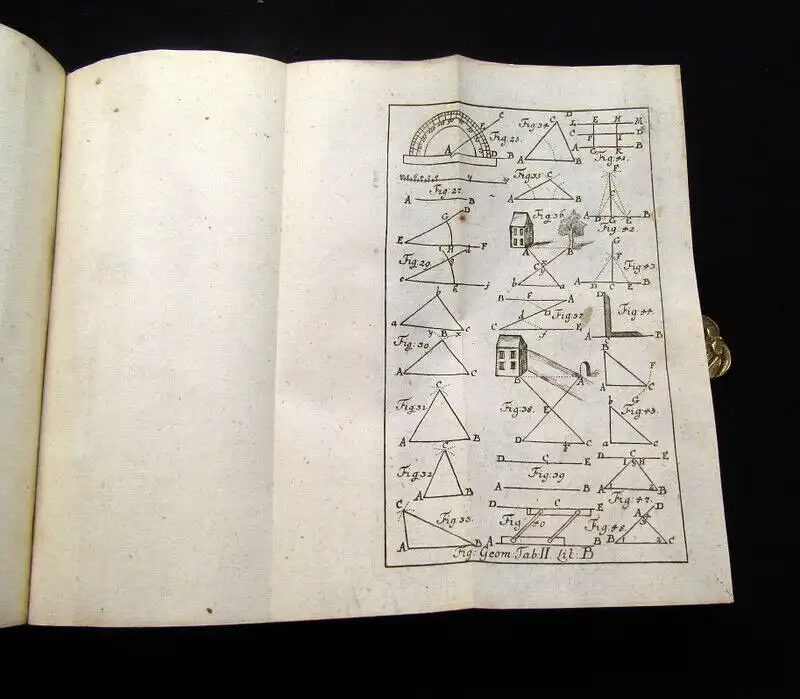 C
F
Fig: 25.
A
D B
Fig: 27.
A B
D
G
E H d F
Fig: 29.
g
e h f
b
a c
y B x
Fig: 30.
A C
C
Fig: 31
A B
C
Fig: 32
A B
C
Fig: 33.
A B
Fig: 34.
C
A B
Fig: 35.
C
A B
Fig: 36.
A B
C x
y
b a
B e A
D Fig: 37.
d
C f E
B A
Fig: 38.
E
D F C
D C E
Fig: 39
A B
D C E
Fig: 40
A B
D
L E H M
C D
F I
A G K B
Fig: 41.
F
A D G E B
Fig: 42.
G
F
Fig: 43.
A D C E B
D
Fig: 44.
A B
B
F
A C
G
b
Fig: 45.
a c
D C E
I H
A B
Fig: 47.
D
A
Fig: 48.
B C
Fig: Geom. Tab. II. Lit: B